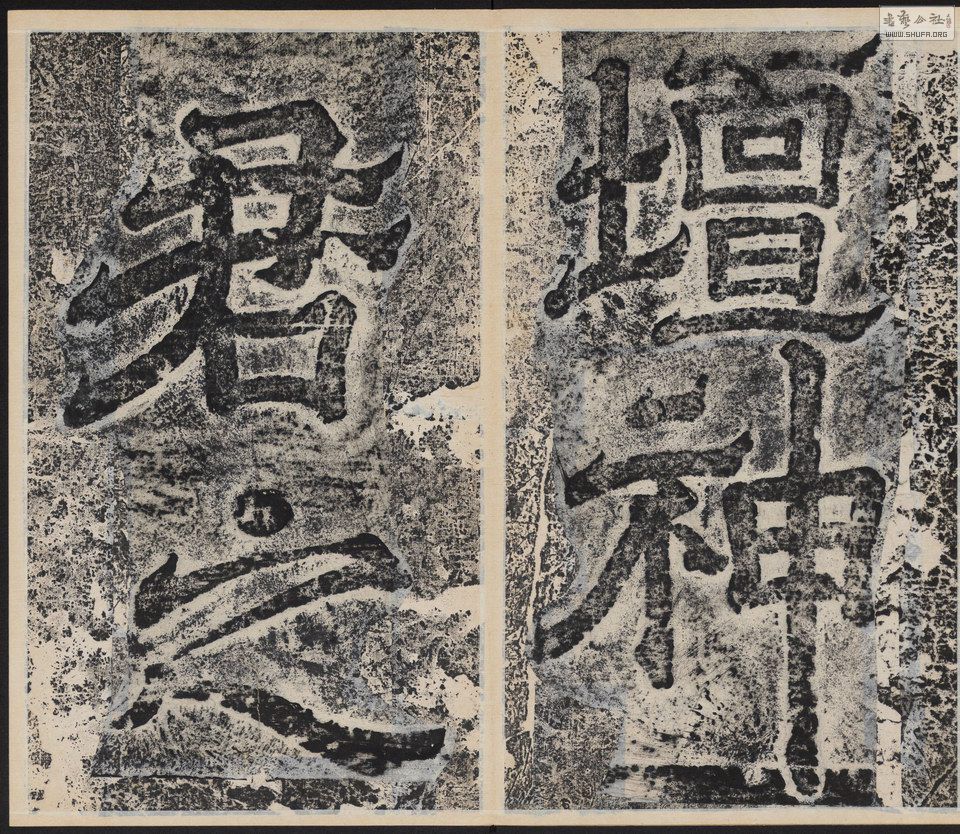 壇神
君之
書藝公社
WWW.SHUFA.ORG